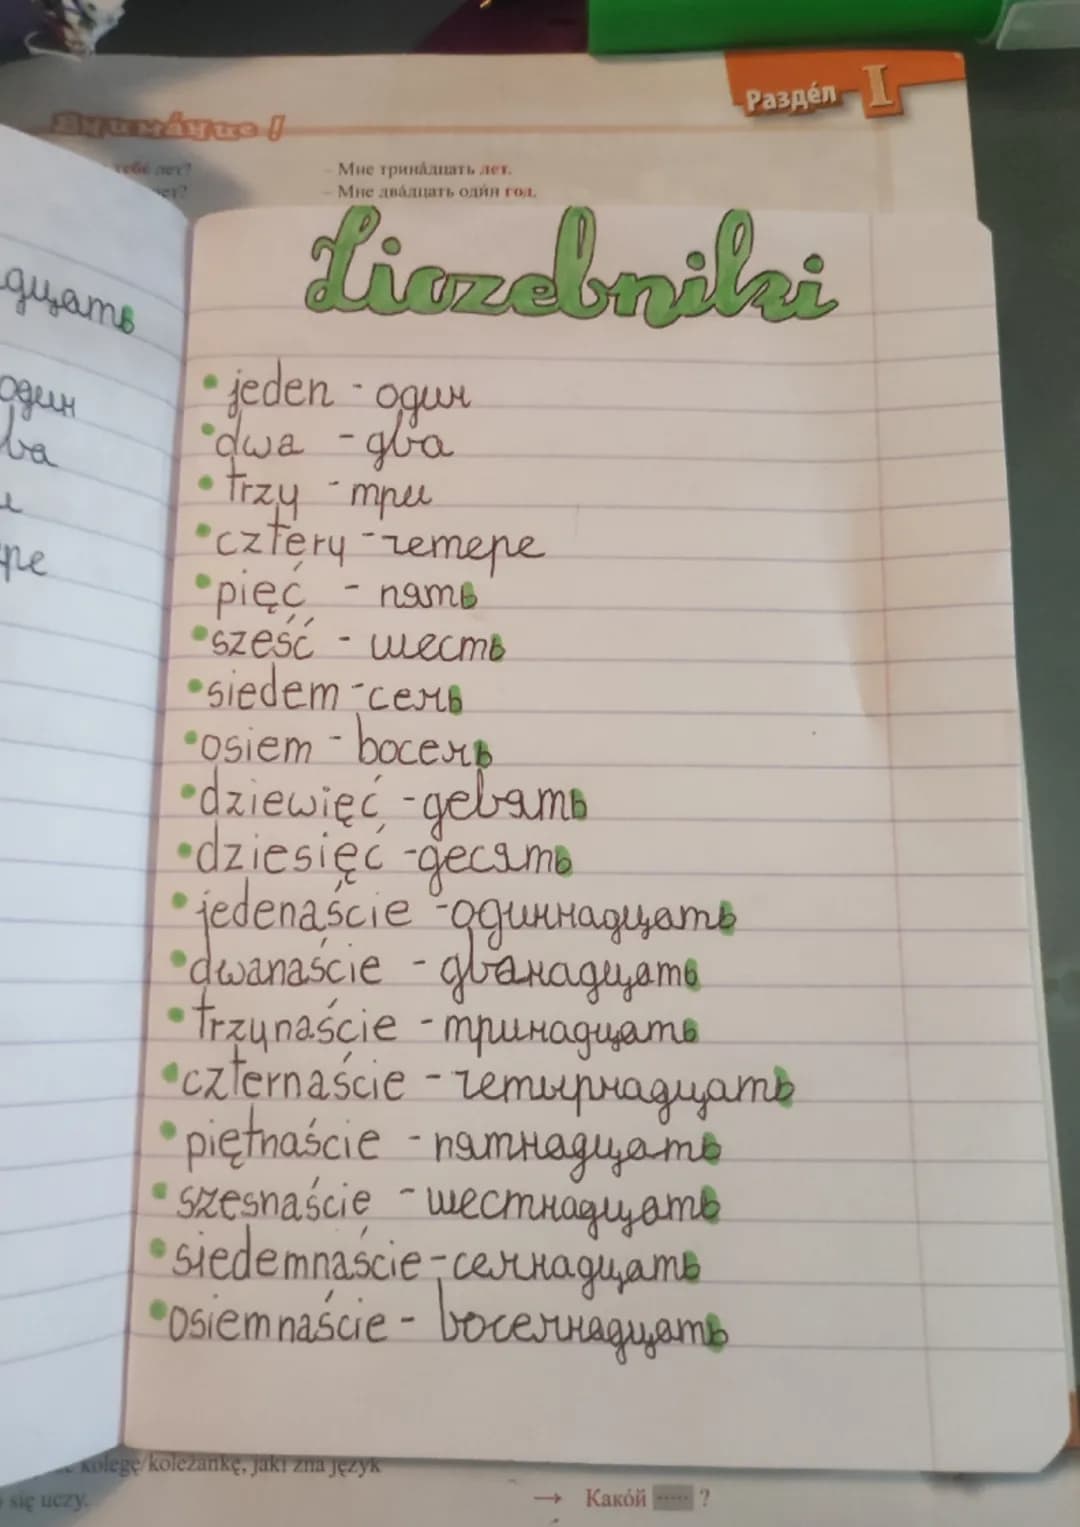 Раздéл I
Внимáние!
тебé лет?
Мне тринáдцать лет.
лет?
Мне двáдцать одúн год.
Liczebniki
дцать
один
ва
ре
• jeden - один
• dwa - два
• trzy - три
• cztery - четере
• pięć - пять
• sześć - шесть
• siedem - семь
• osiem - восемь
• dziewięć - девять
• dziesięć - десять
• jedenaście - одиннадцать
• dwanaście - дванадцать
• trzynaście - тринадцать
• czternaście - четырнадцать
• piętnaście - пятнадцать
• szesnaście - шестнадцать
• siedemnaście - семнадцать
• osiemnaście - восемнадцать
kolegę/koleżankę, jaki zna język
się uczy.
→ Какóй ..... ?